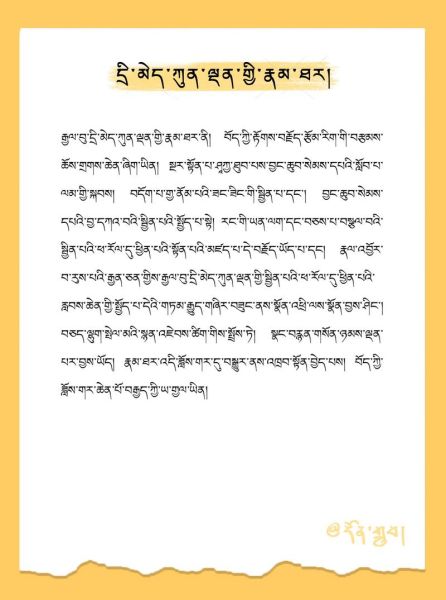 དྲི་མེད་ཀུན་ལྡན་གྱི་རྣམ་ཐར།
རྒྱལ་བུ་དྲི་མེད་ཀུན་ལྡན་གྱི་རྣམ་ཐར་ནི། བོད་ཀྱི་རྟོགས་བརྗོད་རྩོམ་རིག་གི་བརྩམས་
ཆོས་གྲགས་ཆེན་ཞིག་ཡིན། སྔར་སྟོན་པ་ཤཱཀྱ་ཐུབ་པས་བྱང་ཆུབ་སེམས་དཔའི་སློབ་པ་
ལམ་གྱི་སྐབས། བདོག་པ་གུ་ནོམ་པའི་ཟང་ཟིང་གི་སྦྱིན་པ་དང་། བྱང་ཆུབ་སེམས་
དཔའི་བྱ་དཀའ་བའི་སྦྱིན་པའི་སྤྱོད་པ་སྟེ། རང་གི་ཡན་ལག་དང་བཅས་པ་བསྩལ་བའི་
སྦྱིན་པའི་ཕ་རོལ་ཏུ་ཕྱིན་པའི་སྟོན་པའི་མཛད་པ་དེ་བརྗོད་ཡོད་པ་དང། རྣལ་འབྱོར་
བ་རུས་པའི་རྒྱན་ཅན་གྱིས་རྒྱལ་བུ་དྲི་མེད་ཀུན་ལྡན་གྱི་སྦྱིན་པའི་ཕ་རོལ་ཏུ་ཕྱིན་པའི་
རླབས་ཆེན་གྱི་སྤྱོད་པ་དེའི་གཏམ་རྒྱུད་གཞིར་བཟུང་ནས་སྣོན་འཕྲི་ལས་སྣོན་བྱས་ཤིང་།
བཅད་ལྷུག་སྤེལ་མའི་སྙན་འཇེབས་ཚིག་གིས་སྤྲོས་ཏེ། སྣང་བརྙན་གསོན་ཉམས་ལྡན་
པར་བྱས་ཡོད། རྣམ་ཐར་འདི་ཟློས་གར་དུ་བསྒྱུར་ནས་འཁྲབ་སྟོན་བྱེད་པས། བོད་ཀྱི་
ཟློས་གར་ཆེན་པོ་བརྒྱད་ཀྱི་ཡ་གྱལ་ཡིན།
@དོན་གྲུབ།